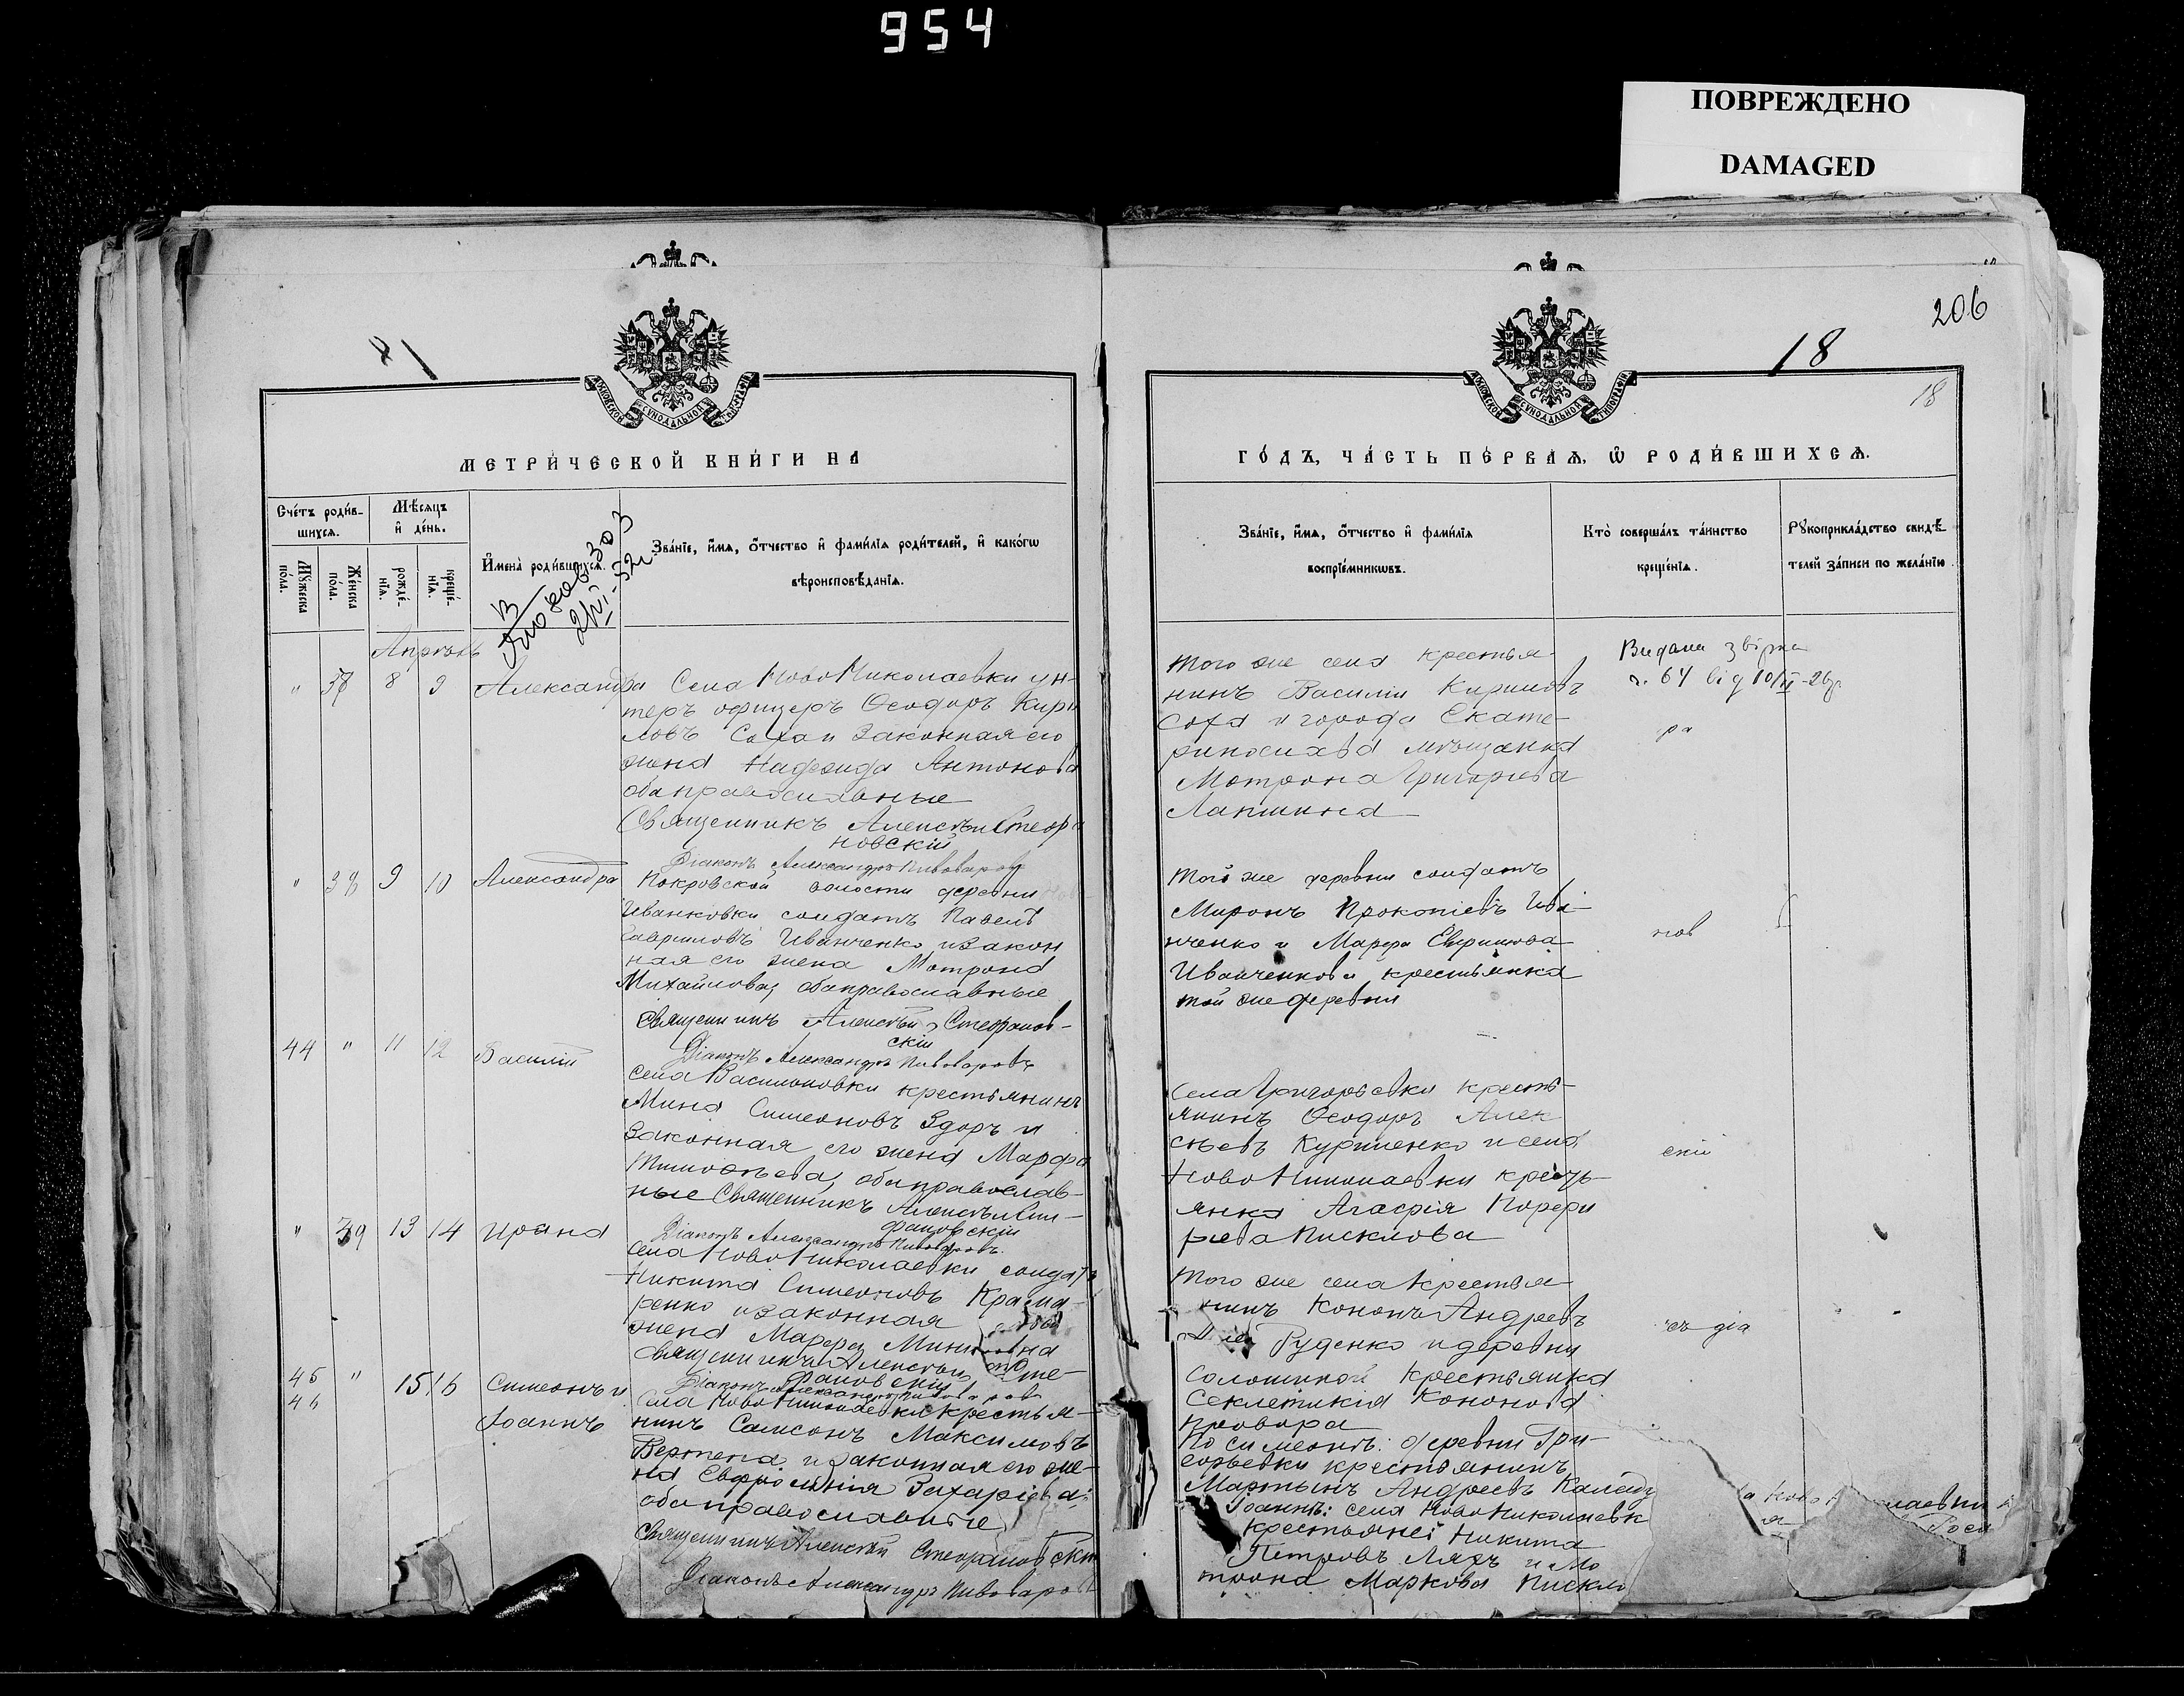 954
ПОВРЕЖДЕНО
DAMAGED
206
18
18
МЕТРИ́ЧЕСКОЙ КНИ́ГИ НА
ГО́ДЪ, ЧА́СТЬ ПЕ́РВАѦ, Ѡ҆ РОДИ́ВШИХСѦ.
Сче́тъ роди́в-
шихсѧ.
Мꙋ́жеска по́ла.
Же́нска по́ла.
Мѣ́сѧцъ и҆ де́нь.
рожде́-
нїѧ.
креще́-
нїѧ.
И҆мена̀ роди́вшихсѧ.
Зва́нїе, и҆́мѧ, ѻ҆́тчество и҆ фами́лїѧ роди́телей, и҆ како́гѡ
вѣроисповѣ́данїѧ.
Зва́нїе, и҆́мѧ, ѻ҆́тчество и҆ фами́лїѧ
воспрїе́мникѡвъ.
Кто̀ соверша́лъ та́инство
креще́нїѧ.
Рꙋкоприкла́дство свидѣ́-
телей за́писи по жела́нїю
Апрѣль
" 8 9 Александра
Села Ново Николаевки ун-
теръ офицеръ Ѳеодоръ Кири
ловъ Соха и законная его
жена Надежда Антонова
оба православные
Священникъ Алексѣй Стефа
новскій
Діаконъ Александръ Пивоваровъ
Того же села крестья-
нинъ Василій Кириловъ
Соха и города Екате-
ринослава мѣщанка
Матрона Григорьева
Лапшина
Видана
ра
" 38 9 10 Александра
Покровской волости деревни
Иванковки солдатъ Павелъ
Гавриловъ Иванченко и закон
ная его жена Матрона
Михайлова, оба православные
Священникъ Алексѣй Стефанов-
скій
Діаконъ Александръ Пивоваровъ
Той же деревни солдатъ
Миронъ Прокопіевъ Ива-
нченко и Марфа
Иванченкова крестьянка
той же деревни
нов
44 " 11 12 Василій
Села Васильковки крестьянинъ
Мина Симеоновъ Здоръ и
законная его жена Марфа
Тимофѣева, оба православ-
ные Священникъ Алексѣй Сте-
фановскій
Діаконъ Александръ Пивоваровъ.
Села Григорьевки кресть-
янинъ Ѳеодоръ Алек
сѣевъ Куриленко и села
Ново Николаевки кресть-
янка Агафія Порфи
рьева Писклова
скій
" 39 13 14 Ирина
Села Ново Николаевки солдатъ
Никита Симеоновъ Крама-
ренко и законная
жена Марфа
Священникъ Алексѣй Сте-
фановскій
Діаконъ Александръ Пивоваровъ
Того же села крестья-
нинъ Кононъ Андреевъ
Руденко и деревни
Солошиной крестьянка
Секлетикія Кононова
съ діа
45 " 15 16 Симеонъ и
46
Іоаннъ
Села Ново Николаевки крестья-
нинъ Самсонъ Максимовъ
и законная его же-
на Евфросинія Захаріева
оба православные
Священникъ Алексѣй Стефановскій
Діаконъ Александръ Пивоваровъ
По Симеонѣ: деревни Гри-
горьевки крестьянинъ
Мартынъ Андреевъ
Іоаннъ: села Ново Николаевк
крестьяне: Никита
Петровъ Ляхъ и Ма
трона Маркова Пискло